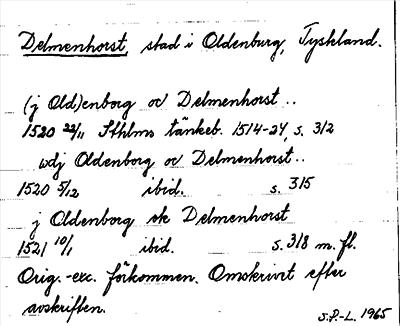 Delmenhorst, stad i Oldenburg, Tyskland.
(j Old)enborg oc Delmenhorst ..
1520 22/11 Sthlms tänkeb. 1514-24, s. 312
wdj Oldenborg oc Delmenhorst ..
1520 5/12 ibid. s. 315
j Oldenborg ok Delmenhorst
1521 10/1 ibid. s. 318 m. fl.
Orig.-exc. förkommen. Omskrivit efter
avskriften.
S.P.-L. 1965